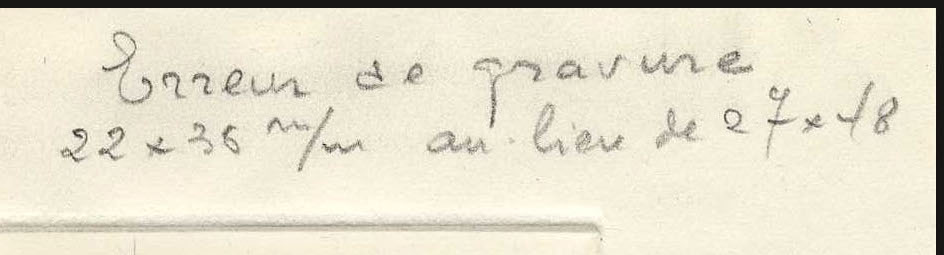 Erreur de gravure
22 x 36 m/m au lieu de 27 x 48